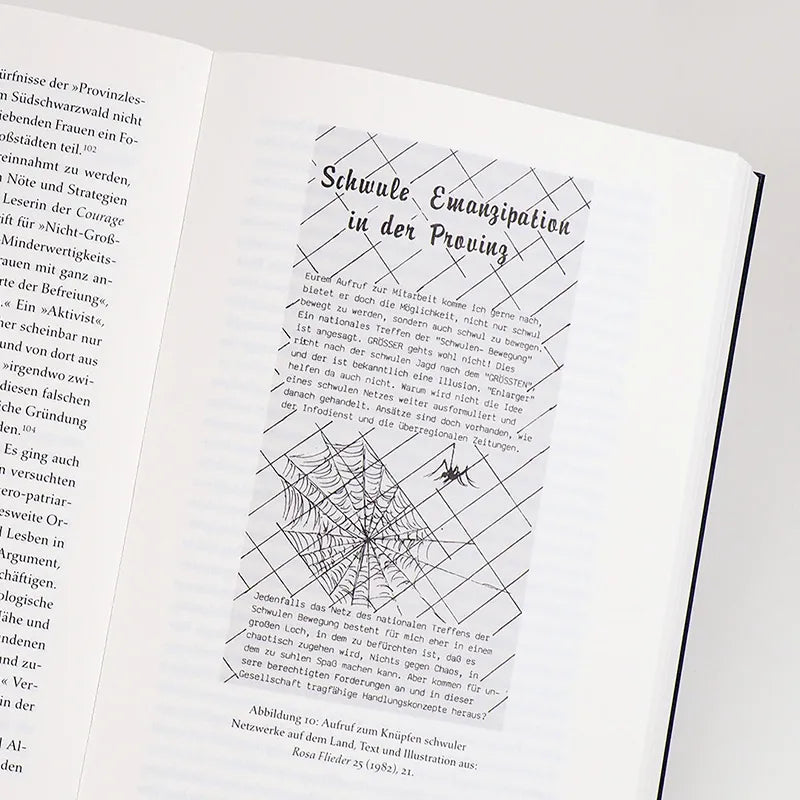 ürfnisse der »Provinzles-
m Südschwarzwald nicht
iebenden Frauen ein Fo-
oßstädten teil.102
reinnahmt zu werden,
n Nöte und Strategien
Leserin der Courage
rift für »Nicht-Groß-
-Minderwertigkeits-
rauen mit ganz an-
rte der Befreiung«,
.« Ein »Aktivist«,
her scheinbar nur
und von dort aus
»irgendwo zwi-
diesen falschen
liche Gründung
den.104
Es ging auch
n versuchten
ero-patriar-
esweite Or-
d Lesben in
Argument,
chäftigen.
ologische
Nähe und
undenen
und zu-
« Ver-
in der
d Al-
den
Schwule Emanzipation
in der Provinz
Eurem Aufruf zur Mitarbeit komme ich gerne nach,
bietet er doch die Möglichkeit, nicht nur schwul
bewegt zu werden, sondern auch schwul zu bewegen.
Ein nationales Treffen der "Schwulen- Bewegung"
ist angesagt. GRÖSSER gehts wohl nicht! Dies
richt nach der schwulen Jagd nach dem "GRÖSSTEN"
und der ist bekanntlich eine Illusion. "Enlarger"
helfen da auch nicht. Warum wird nicht die Idee
eines schwulen Netzes weiter ausformuliert und
danach gehandelt. Ansätze sind doch vorhanden, wie
der Infodienst und die überregionalen Zeitungen.
Jedenfalls das Netz des nationalen Treffens der
Schwulen Bewegung besteht für mich eher in einem
großen Loch, in dem zu befürchten ist, daß es
chaotisch zugehen wird, Nichts gegen Chaos, in
dem zu suhlen Spaß machen kann. Aber kommen für un-
sere berechtigten Forderungen an und in dieser
Gesellschaft tragfähige Handlungskonzepte heraus?
Abbildung 10: Aufruf zum Knüpfen schwuler
Netzwerke auf dem Land, Text und Illustration aus:
Rosa Flieder 25 (1982), 21.